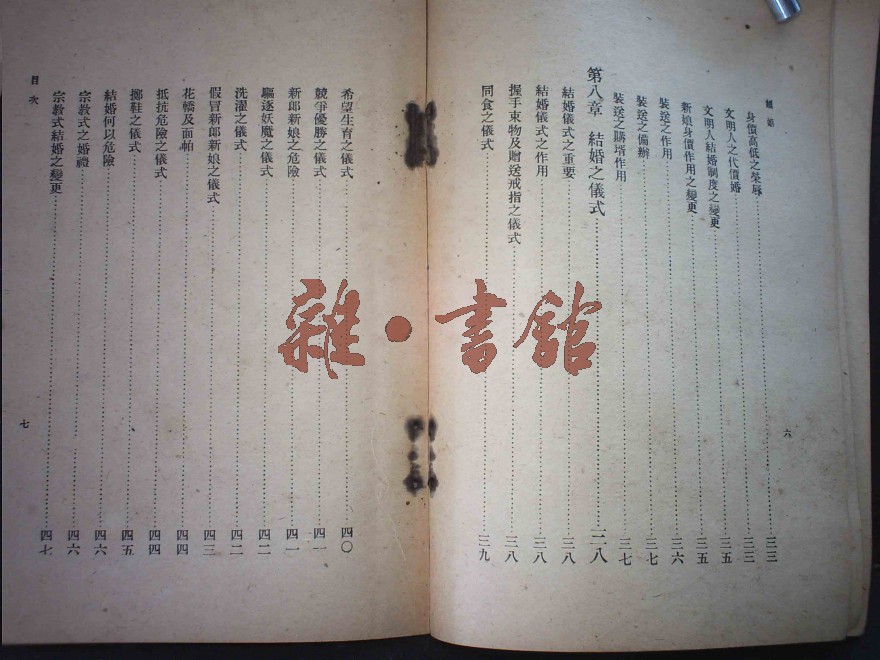 身價高低之榮辱 三三
文明人之代價婚 三三
文明人結婚制度之變更 三五
新娘身價作用之變更 三五
裝送之作用 三六
裝送之備辦 三七
裝送之購壻作用 三七
第八章 結婚之儀式 三八
結婚儀式之重要 三八
結婚儀式之作用 三八
握手束物及贈送戒指之儀式 三八
同食之儀式 三九
六
希望生育之儀式 四〇
競爭優勝之儀式 四一
新郎新娘之危險 四一
驅逐妖魔之儀式 四二
洗濯之儀式 四二
假冒新郎新娘之儀式 四三
花轎及面帕 四四
抵抗危險之儀式 四四
擲鞋之儀式 四五
結婚何以危險 四六
宗教式之婚禮 四六
宗教式結婚之變更 四七
目次
七
雜·書館